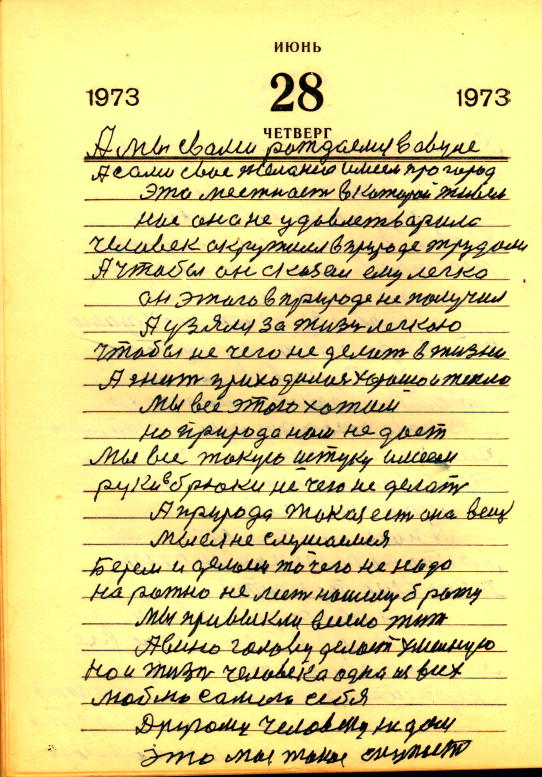 ИЮНЬ
1973 28 1973
ЧЕТВЕРГ
А мы с вами рождаемся в авуле
А сами свое желание имеем про город
Это местност в которой жизнь
нас она не удовлетварила
Человек окружился в природе трудами
А чтобы он сказал ему легко
он этого в природе не получил
А узяли за жизн легкою
Чтобы не чего не делат в жизни
А жит приходилося хорошо и тепло
Мы все этого хотим
но природа нам не дает
Мы все такую штуку имеем
руки в брюки не чего не делат
А природа такая ест она вещ
Мы ея не слушаемся
Берем и делаем то чего не надо
На рожно не лезт нашему брату
Мы привыкли весело жит
А вино голову делает умную
Но и жизн человека одна из всех
Люблю самого себя
Другому человеку не дам
Это мое такое скупост